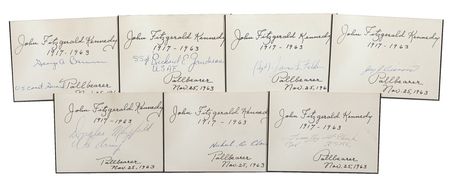 John Fitzgerald Kennedy
1917-1963
George A. Barnum
US Coast Guard
Pallbearer
Nov. 25, 1963
John Fitzgerald Kennedy
1917-1963
SSgt Richard E. Gaudreau
USAF
Pallbearer
Nov. 25, 1963
John Fitzgerald Kennedy
1917-1963
James L. Felder
Pallbearer
Nov. 25, 1963
John Fitzgerald Kennedy
1917-1963
Pallbearer
Nov. 25, 1963
John Fitzgerald Kennedy
1917-1963
Douglas Mayfield
US Army
Pallbearer
Nov. 25, 1963
John Fitzgerald Kennedy
1917-1963
Pallbearer
Nov. 25, 1963
John Fitzgerald Kennedy
1917-1963
Pallbearer
Nov. 25, 1963